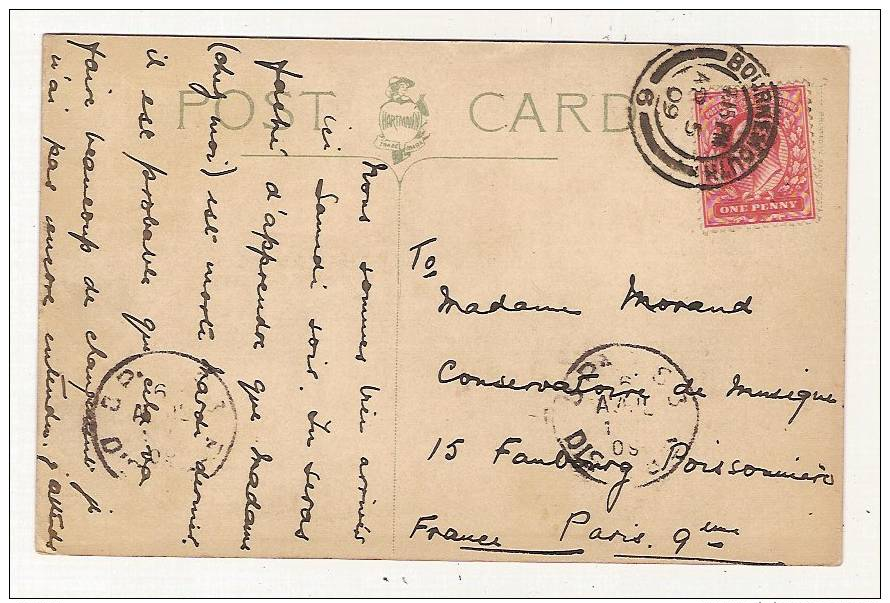 POST CARD
HARTMANN
TRADE MARK
BOURNEMOUTH
8.15 PM
AP 5
09
6
ONE PENNY
To,
Madame Morand
Conservatoire de Musique
15 Faubourg Poissonnière
France Paris. 9ème
PARIS
6
AVRIL
09
DIS
Nous sommes bien arrivés
ici Samdi soir. Tu seras
faché d'apprendre que Madame
(chez moi) est morte Mardi dernier.
il est probable que cela va
faire beaucoup de changement je
n'ai pas encore entendu. j'attends